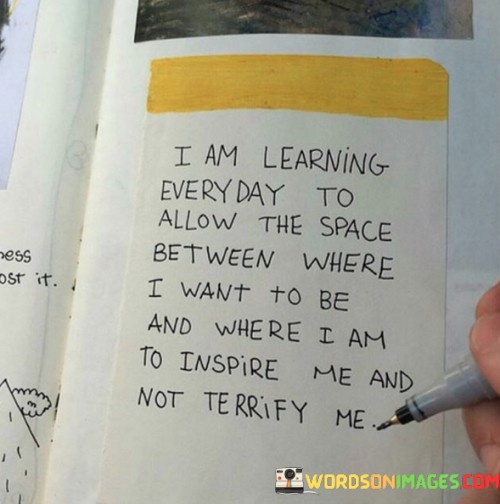 I AM LEARNING
EVERYDAY TO
ALLOW THE SPACE
BETWEEN WHERE
I WANT TO BE
AND WHERE I AM
TO INSPIRE ME AND
NOT TERRIFY ME.
ost it.
WORDSONIMAGES.COM